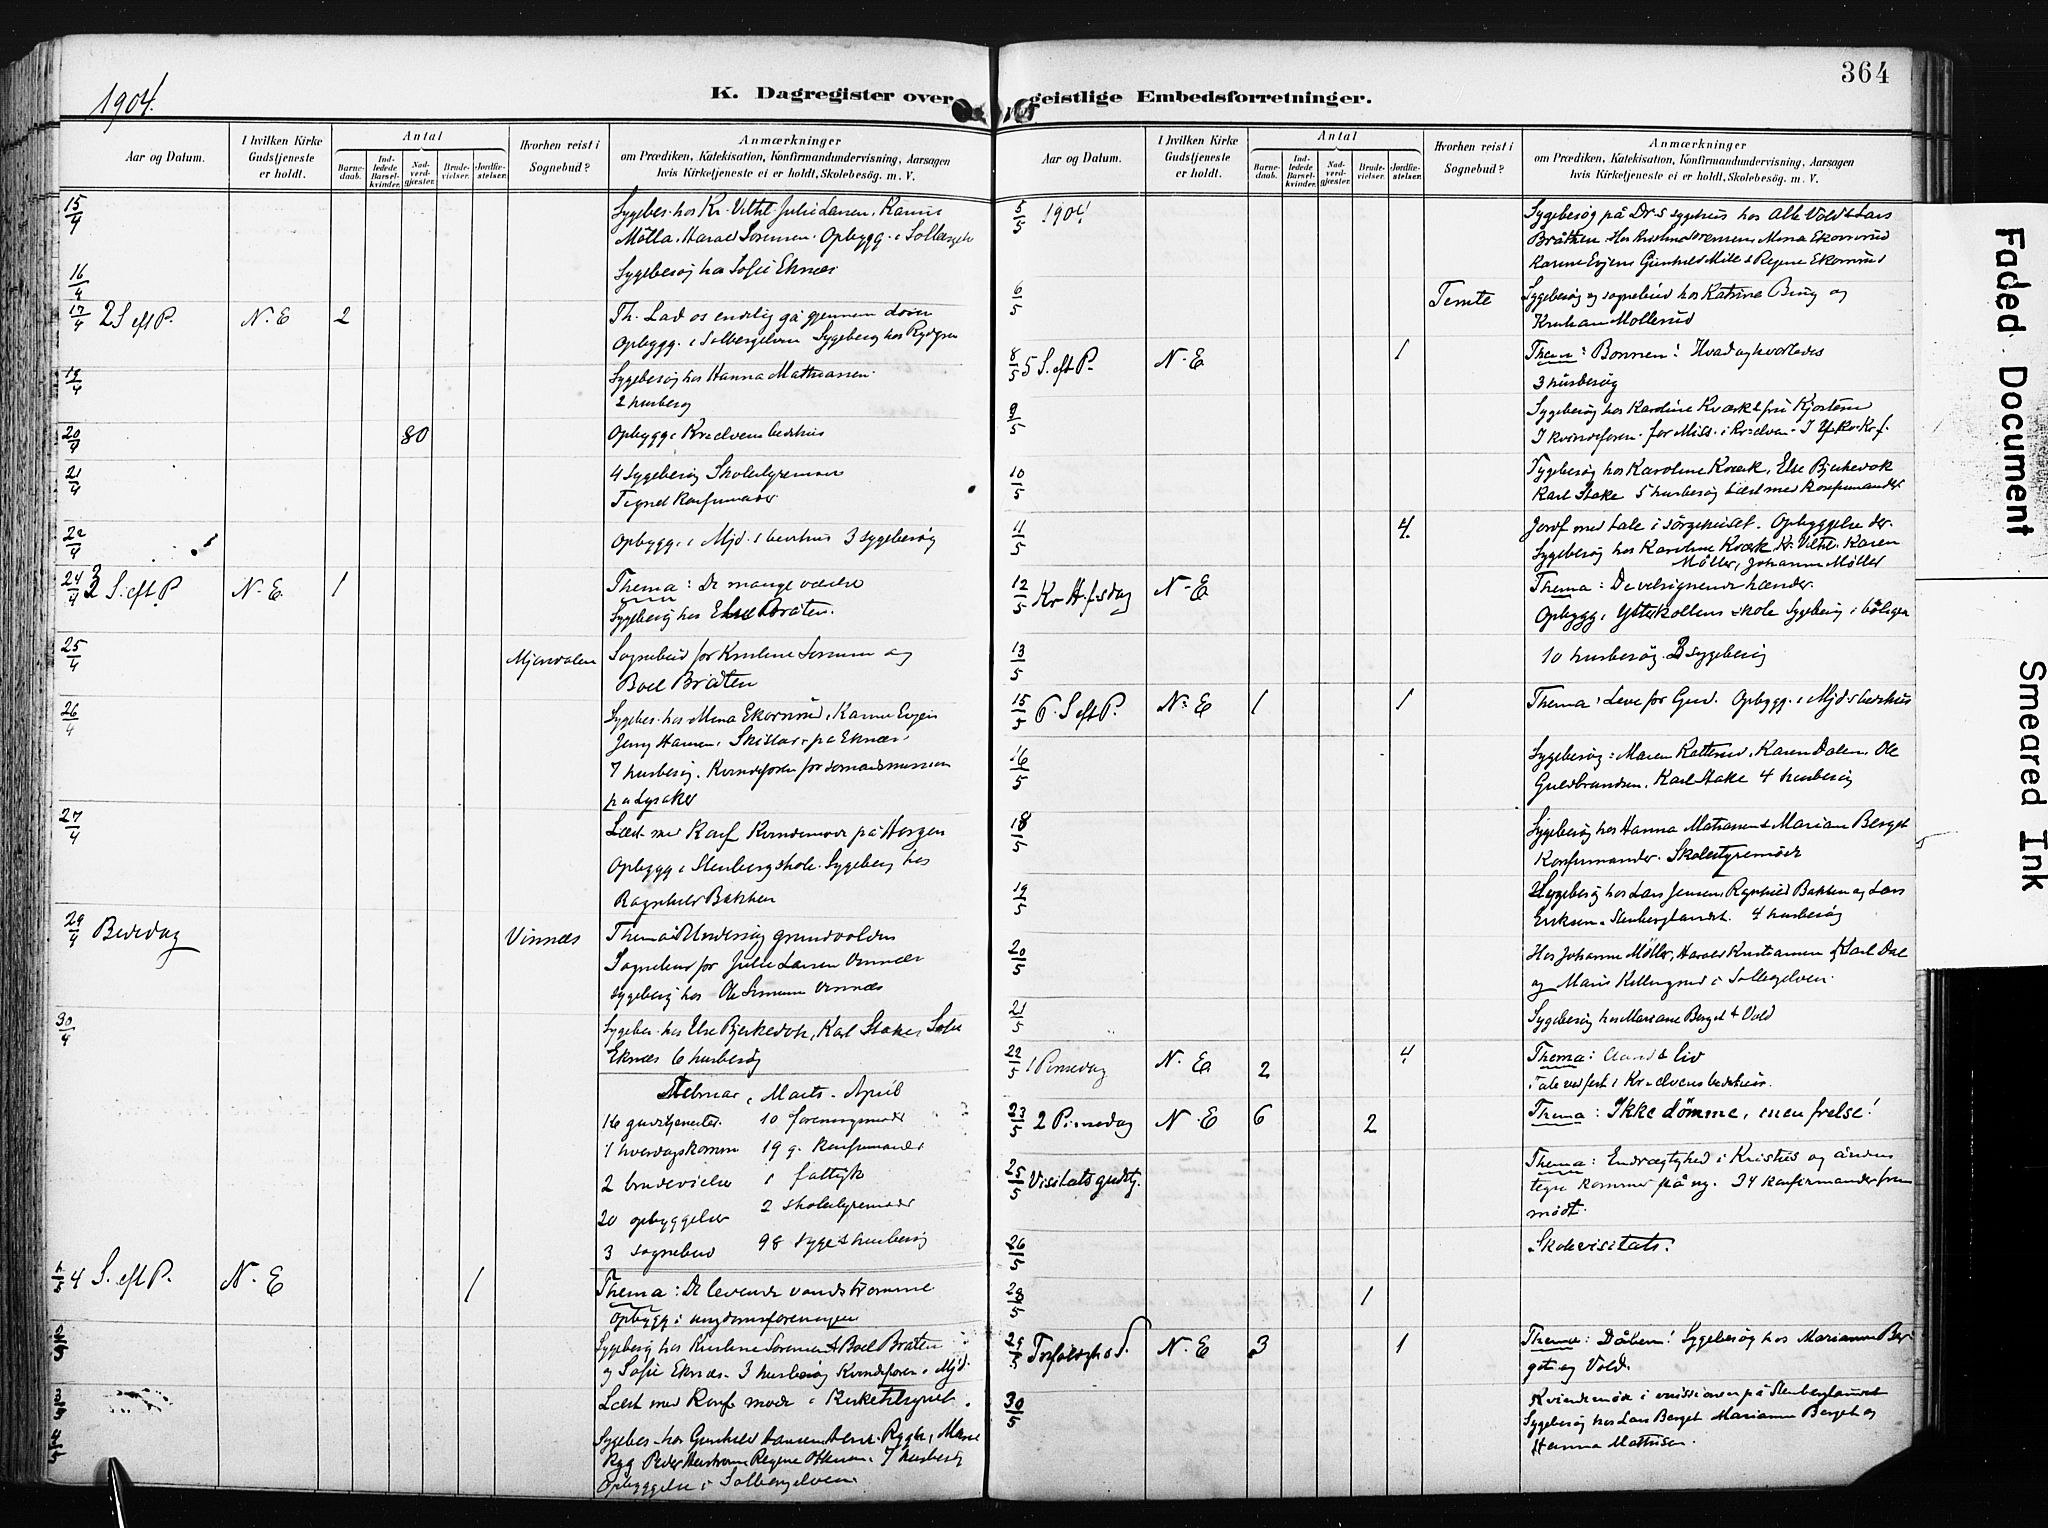 364
1904.
K. Dagregister over geistlige Embedsforretninger.
Aar og Datum.
I hvilken Kirke Gudstjeneste er holdt.
Antal
Barnedaab.
Indledede Barselkvinder.
Nadverdgjæster.
Brudevielser.
Jordfæstelser.
Hvorhen reist i Sognebud?
Anmærkninger
om Prædiken, Katekisation, Konfirmandundervisning, Aarsagen
hvis Kirketjeneste ei er holdt, Skolebesög. m. V.
15/4 Sygebes. hos Kr. Vilhl. Julie Larsen, Karins
Mölla, Harald Sorensen. Opbygg. i Solbergelv
16/4 Sygebesøg hos Sofie Eknæs
17/4 2 S. eft P. N. E 2 Th. Lad os endelig gå gjennem døren
Opbygg. i Solbergelven Sygebesøg hos
19/4 Sygebesøg hos Hanna Mathiassen.
2 husbesøg
20/4 80 Opbygg. i Kr.elvens bedehus
21/4 4 sygebesøg Skolestyremøde
Tegnet konfirmander
22/4 Opbygg. i Mjd.s bedehus 3 sygebesøg
24/4 3 S. eft. P N. E. 1 Thema: De mange
Sygebesøg hos Else Bråten.
25/4 Mjøndalen Sognebud for Kristine Sorensen og
Boel Bråten
26/4 Sygebes. hos Mena Ekornrud, Karine Evjen
Jeny Hansen, på Eknæs.
7 husbesøg. Kvindeforen. for sømandsmissionen
på Lysaker
27/4 Læst med Konf. Kvindemøde på Horgen
Opbygg. i Stenberg skole. Sygebesøg hos
Ragnhild Bakken
29/4 Bededag Vinnæs Thema: Undersøg grundvolden
Sognebud for Julie Larsen Vinnæs
sygebesøg hos Ole Simensen Vinnæs
30/4 Sygebes. hos Else Bjerkedok, Karl Stake, Sofie
Eknæs 6 husbesøg
Februar, Marts. April
16 gudstjenester. 10 foreningsmøder
1 hverdagskomm 19 g. konfirmander
2 brudevielser 1 fattigk
20 opbyggelser 2 skolestyremøder
3 sognebud 98 syge & husbesøg
1/5 4 S. eft P. N. E 1 Thema: De levende vandstrømme
Opbygg. i ungdomsforeningen
2/5 Sygebesøg hos Kristine Sorensen & Boel Bråten
og Sofie Eknæs. 3 husbesøg Kvindeforen. i Mjd.
3/5 Læst med Konf. møde i Kirketilsynet.
4/5 Sygebes. hos Gunhild Hansen, Marie
Ryg Peder Regine Ottersen. 7 husbesøg
Opbyggelse i Solbergelven
Aar og Datum.
I hvilken Kirke Gudstjeneste er holdt.
Antal
Barnedaab.
Indledede Barselkvinder.
Nadverdgjæster.
Brudevielser.
Jordfæstelser.
Hvorhen reist i Sognebud?
Anmærkninger
om Prædiken, Katekisation, Konfirmandundervisning, Aarsagen
hvis Kirketjeneste ei er holdt, Skolebesög. m. V.
5/5 1904 Sygebesøg på Dr.s sygehus hos Vold & Lars
Bråthen. Hos Kristine Sorensen Mena Ekornrud
Karine Evjen Gunhild Mile & Regine Ekornrud
6/5 Temte Sygebesøg og sognebud hos Katrine Bing og
Kristian Mollerud
8/5 5 S. eft P. N. E 1 Thema: Bønnen! Hvad og hvorledes
3 husbesøg
9/5 Sygebesøg hos Karoline Kværk & fru Kjostem
I kvindeforen. for Miss. i Kr.elven.
10/5 Sygebesøg hos Karoline Kværk, Else Bjerkedok
Karl Stake 5 husbesøg Læst med konfirmander
11/5 4 Jordf. med tale i sørgehuset. Opbyggelse der.
Sygebesøg hos Karoline Kværk, Kr. Vilhl. Karen
Möller, Johanne Möller
12/5 Kr. H.f.sdag N. E Thema: De velsignende hænder.
Opbygg. i Ytterkollens skole Sygebesøg i boligen
13/5 10 husbesøg. 3 sygebesøg
15/5 6. S eft P. N. E 1 1 Thema: Leve for Gud. Opbygg. i Mjd.s bedehus
16/5 Sygebesøg: Maren Kattrud, Karen Dalen, Ole
Guldbrandsen, Karl Stake 4 husbesøg
18/5 Sygebesøg hos Hanna Matiassen & Mariane Berget
Konfirmander. Skolestyremøde
19/5 Sygebesøg hos Lars Jensen, Ragnhild Bakken og Lars
Eriksen, Stenberglandet. 4 husbesøg
20/5 Hos Johanne Möller, Harald Kristiansen & Karl Dal
og Maris i Solbergelven.
21/5 Sygebesøg hos Mariane Berget & Vold
22/5 1 Pinsedag N. E 2 4 Thema: Aand & liv
Tale ved fest i Kr.elvens bedehus.
23/5 2 Pinsedag N. E 6 2 Thema: Ikke dömme, men frelse!
25/5 Visitatsgudstj. Thema: Endrægtighed i Kristus og åndens
tegn kommer på ny. 34 konfirmander frem
mødt.
26/5 Skolevisitats.
28/5 1
29/5 Trefoldighds S. N. E 3 1 Thema: Dåben! Sygebesøg hos Marianne Ber-
get og Vold.
30/5 Kvindemøde i missionen på Stenberglandet
Sygebesøg hos Lars Berget Marianne Berget og
Hanna Mathisen.
Faded Document
Smeared Ink